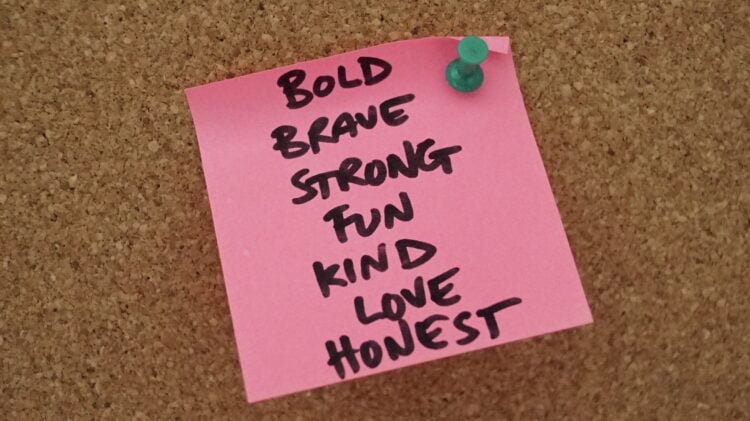 BOLD
BRAVE
STRONG
FUN
KIND
LOVE
HONEST